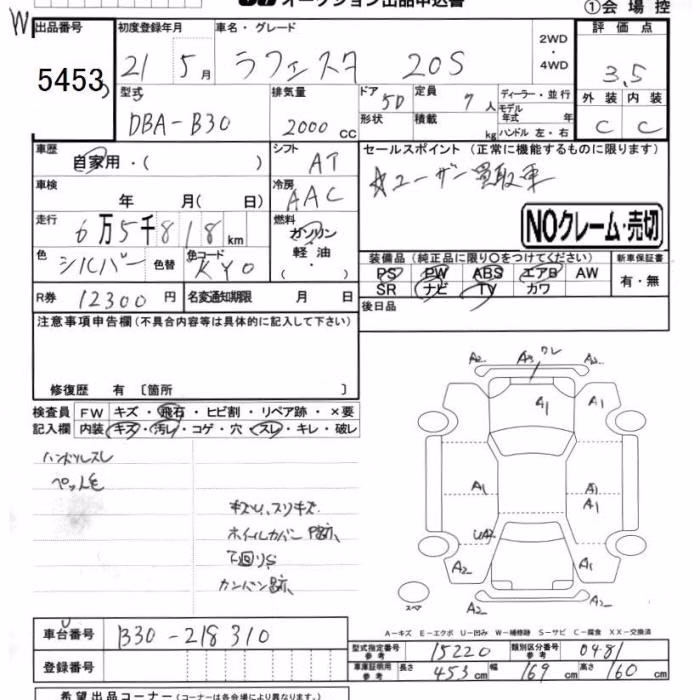 オークション出品申込書
①会場控
W
出品番号 初度登録年月 車名・グレード 評価点
5453 21 5月 ラフェスタ 20S 2WD・4WD 3.5
型式 排気量 ドア 5D 定員 7人 ディーラー・並行 外装 内装
DBA-B30 2000cc 形状 積載 kg モデル年式 年 C C
ハンドル 左・右
車歴 自家用・( ) シフト AT セールスポイント(正常に機能するものに限ります)
車検 年 月(日) 冷房 AAC ☆ユーザー買取車
走行 6万5千818km 燃料 ガソリン・軽油・ NOクレーム・売切
色 シルバー 色替 色コード KY0 装備品(純正品に限り〇をつけてください) 新車保証書
PS PW ABS エアB AW 有・無
SR ナビ TV カワ
R券 12300円 名変通知期限 月 日 後日品
注意事項申告欄(不具合内容等は具体的に記入して下さい)
修復歴 有〔箇所 〕
検査員 FW キズ・飛石・ヒビ割・リペア跡・×要
記入欄 内装 キズ・汚レ・コゲ・穴・スレ・キレ・破レ
ハンドルスレ
ペット毛
キズU、スリキズ
ホイルカバー
下回りS
カンバン跡、
A2 A3 ワレ A2
A1 A1 A1
A1 A1 A1
UA2 A1
A2 A2
スペア
A-キズ E-エクボ U-凹み W-補修跡 S-サビ C-腐食 XX-交換済
車台番号 B30-218310
型式指定番号 参考 15220 類別区分番号 参考 0481
登録番号 車庫証明用 参考 長さ 453cm 幅 169cm 高さ 160cm
希望出品コーナー(コーナーは各会場により異なります)